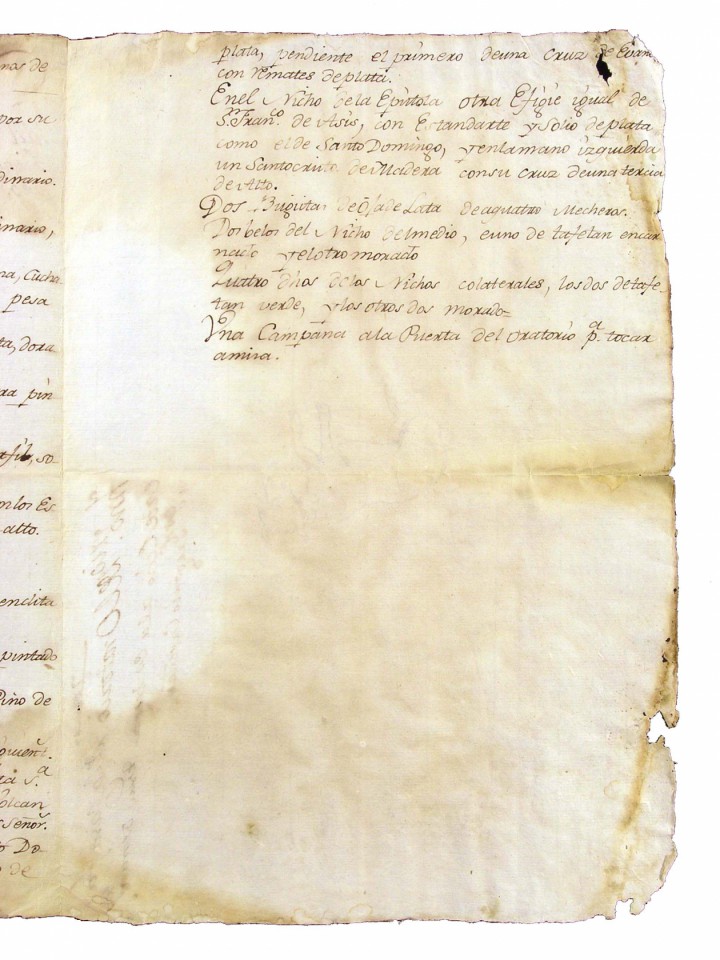 nas de
por su
dinario.
inario,
na, Cucha
pesa
ta, dora
ra pin
afil, so-
en los Es
alto.
endita
pintado
Pino de
quient.
sª
olcan
señor.
Do-
de
plata, pendiente el primero deuna Cruz de Evan
con remates de plata.
Enel Nicho dela Epistola otra Efigie igual de
Sⁿ Franᶜᵒ de Asis, con Estandarte y Solio de plata
como el de Santo Domingo, y enlamano izquierda
un Santocristo de Madera consu cruz deuna tercia
de Alto.
Dos de Oja de Lata de aquatro Mecheros.
Dos belos del Nicho delmedio, euno de tafetan encar
nado yelotro morado
Quatro dhos delos Nichos colaterales, los dos detafe-
tan verde, y los otros dos morado-
Vna Campana ala Puerta del oratorio pª tocar
amisa.